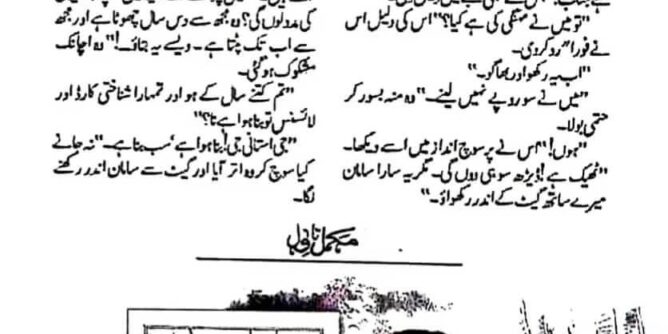 "تو میں نے مہنگی کی ہے کیا؟" اس کی دلیل اس
نے فوراً رد کر دی۔
"اب یہ رکھو اور بھاگو۔"
"میں نے سو روپے نہیں لینے۔" وہ منہ بسور کر
حتمی بولا۔
"ہوں!" اس نے پرسوچ انداز میں اسے دیکھا۔
"ٹھیک ہے! ڈیڑھ سو ہی دوں گی۔ مگر یہ سارا سامان
میرے ساتھ گیٹ کے اندر رکھواؤ۔"
کی مدد لوں گی؟ وہ مجھ سے دس سال چھوٹا ہے اور مجھ
سے اب تک پٹتا ہے۔ ویسے یہ بتاؤ!" وہ اچانک
مشکوک ہو گئی۔
"تم کتنے سال کے ہو اور تمہارا شناختی کارڈ اور
لائسنس تو بنا ہوا ہے نا؟"
"جی استانی جی! بنا ہوا ہے، سب بنا ہے۔" نہ جانے
کیا سوچ کر وہ اتر آیا اور گیٹ سے سامان اندر رکھنے
لگا۔
مکمل ناول